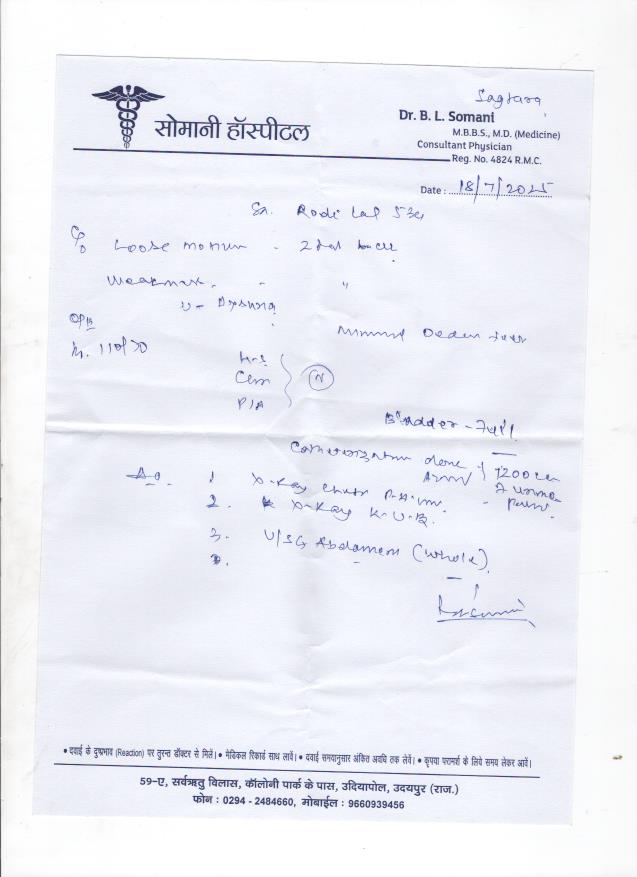 Sagtara
सोमानी हॉस्पीटल
Dr. B. L. Somani
M.B.B.S., M.D. (Medicine)
Consultant Physician
Reg. No. 4824 R.M.C.
Date : 18/7/2025
Rodi Lal 53y
C/o Loose motion - 2
Weakness - "
Dysuria
110/70
CVS
P/A
N
Bladder - Full
Catheterization done
1200 cc
Urine
1 X-Ray Chest P.A. view
2. X-Ray K.U.B.
3. U/SG Abdomen (Whole)
• दवाई के दुष्प्रभाव (Reaction) पर तुरन्त डॉक्टर से मिलें। • मेडिकल रिकार्ड साथ लावें। • दवाई समयानुसार अंकित अवधि तक लेवें। • कृपया परामर्श के लिये समय लेकर आवें।
59-ए, सर्वऋतु विलास, कॉलोनी पार्क के पास, उदियापोल, उदयपुर (राज.)
फोन : 0294 - 2484660, मोबाईल : 9660939456